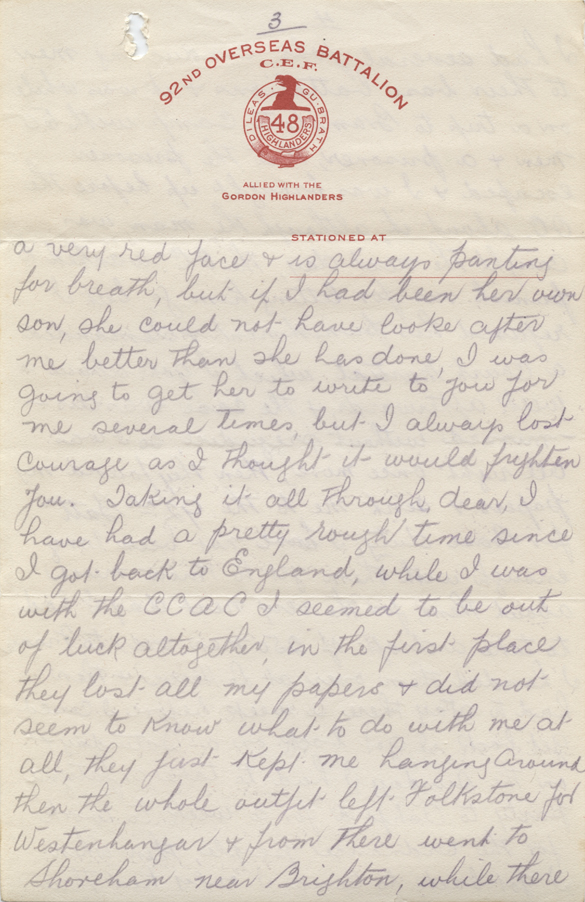 3
92ND OVERSEAS BATTALION
C.E.F.
DILEAS GU BRATH
48
HIGHLANDERS
ALLIED WITH THE
GORDON HIGHLANDERS
STATIONED AT
a very red face & is always panting
for breath, but if I had been her own
son, she could not have looke after
me better than she has done, I was
going to get her to write to you for
me several times, but I always lost
courage as I thought it would frighten
you. Taking it all through, dear, I
have had a pretty rough time since
I got back to England, while I was
with the CCAC I seemed to be out
of luck altogether, in the first place
they lost all my papers & did not
seem to know what to do with me at
all, they just kept me hanging around
then the whole outfit left Folkstone for
Westenhangar & from there went to
Shoreham near Brighton, while there